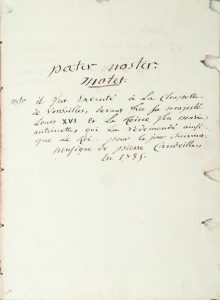 pater noster.
motet
il fut Executé à La Chapelle
de Versailles, devant feu sa majesté
Louis XVI et la Reine feu marie
antoinette, qui La redemandé ausi
que le Roi pour le jour suivant
musique de pierre Candeille
en 1785.